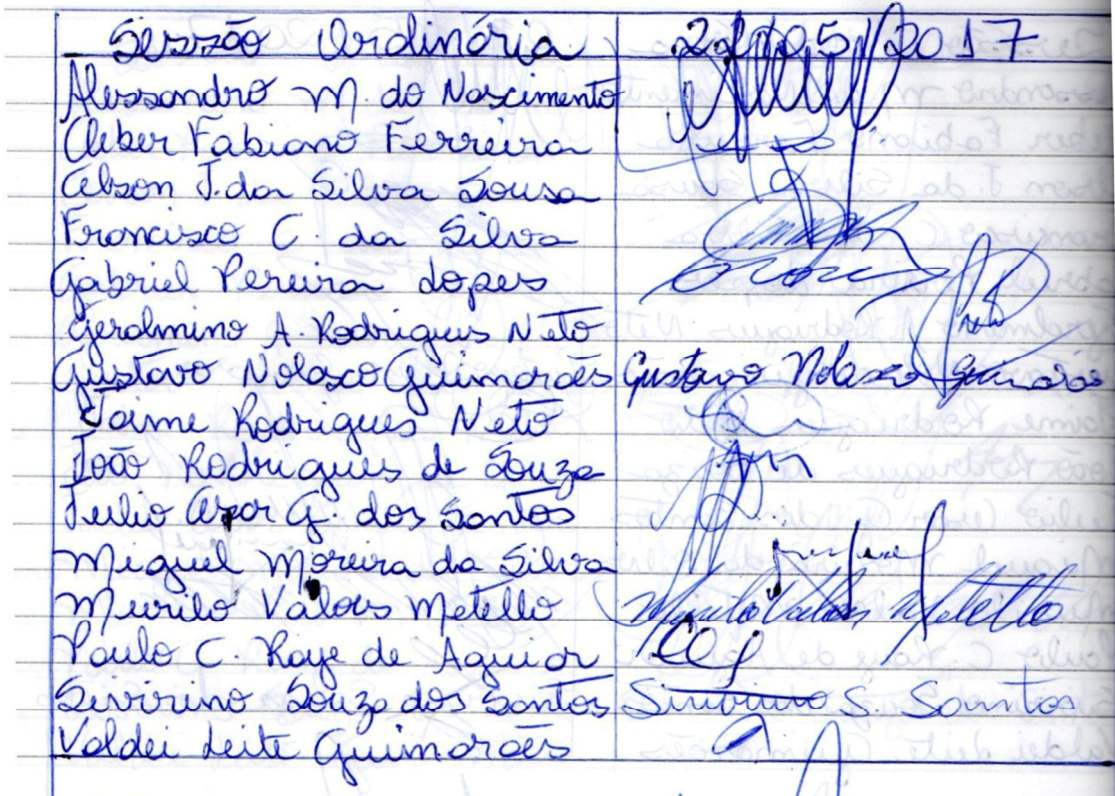 Sessão Ordinária 2 /05/2017
Alessandro M. do Nascimento
Cleber Fabiano Ferreira
Celson J. da Silva Sousa
Francisco C. da Silva
Gabriel Pereira Lopes
Gerolmino A. Rodrigues Neto
Gustavo Nolasco Guimarães Gustavo Nolasco Guimarães
Jaime Rodrigues Neto
João Rodrigues de Souza
Julio Cezar G. dos Santos
Miguel Moreira da Silva
Murilo Valoes Metello Murilo Valoes Metello
Paulo C. Raye de Aguiar
Sivirino Souza dos Santos Sivirino S. Santos
Valdei Leite Guimarães